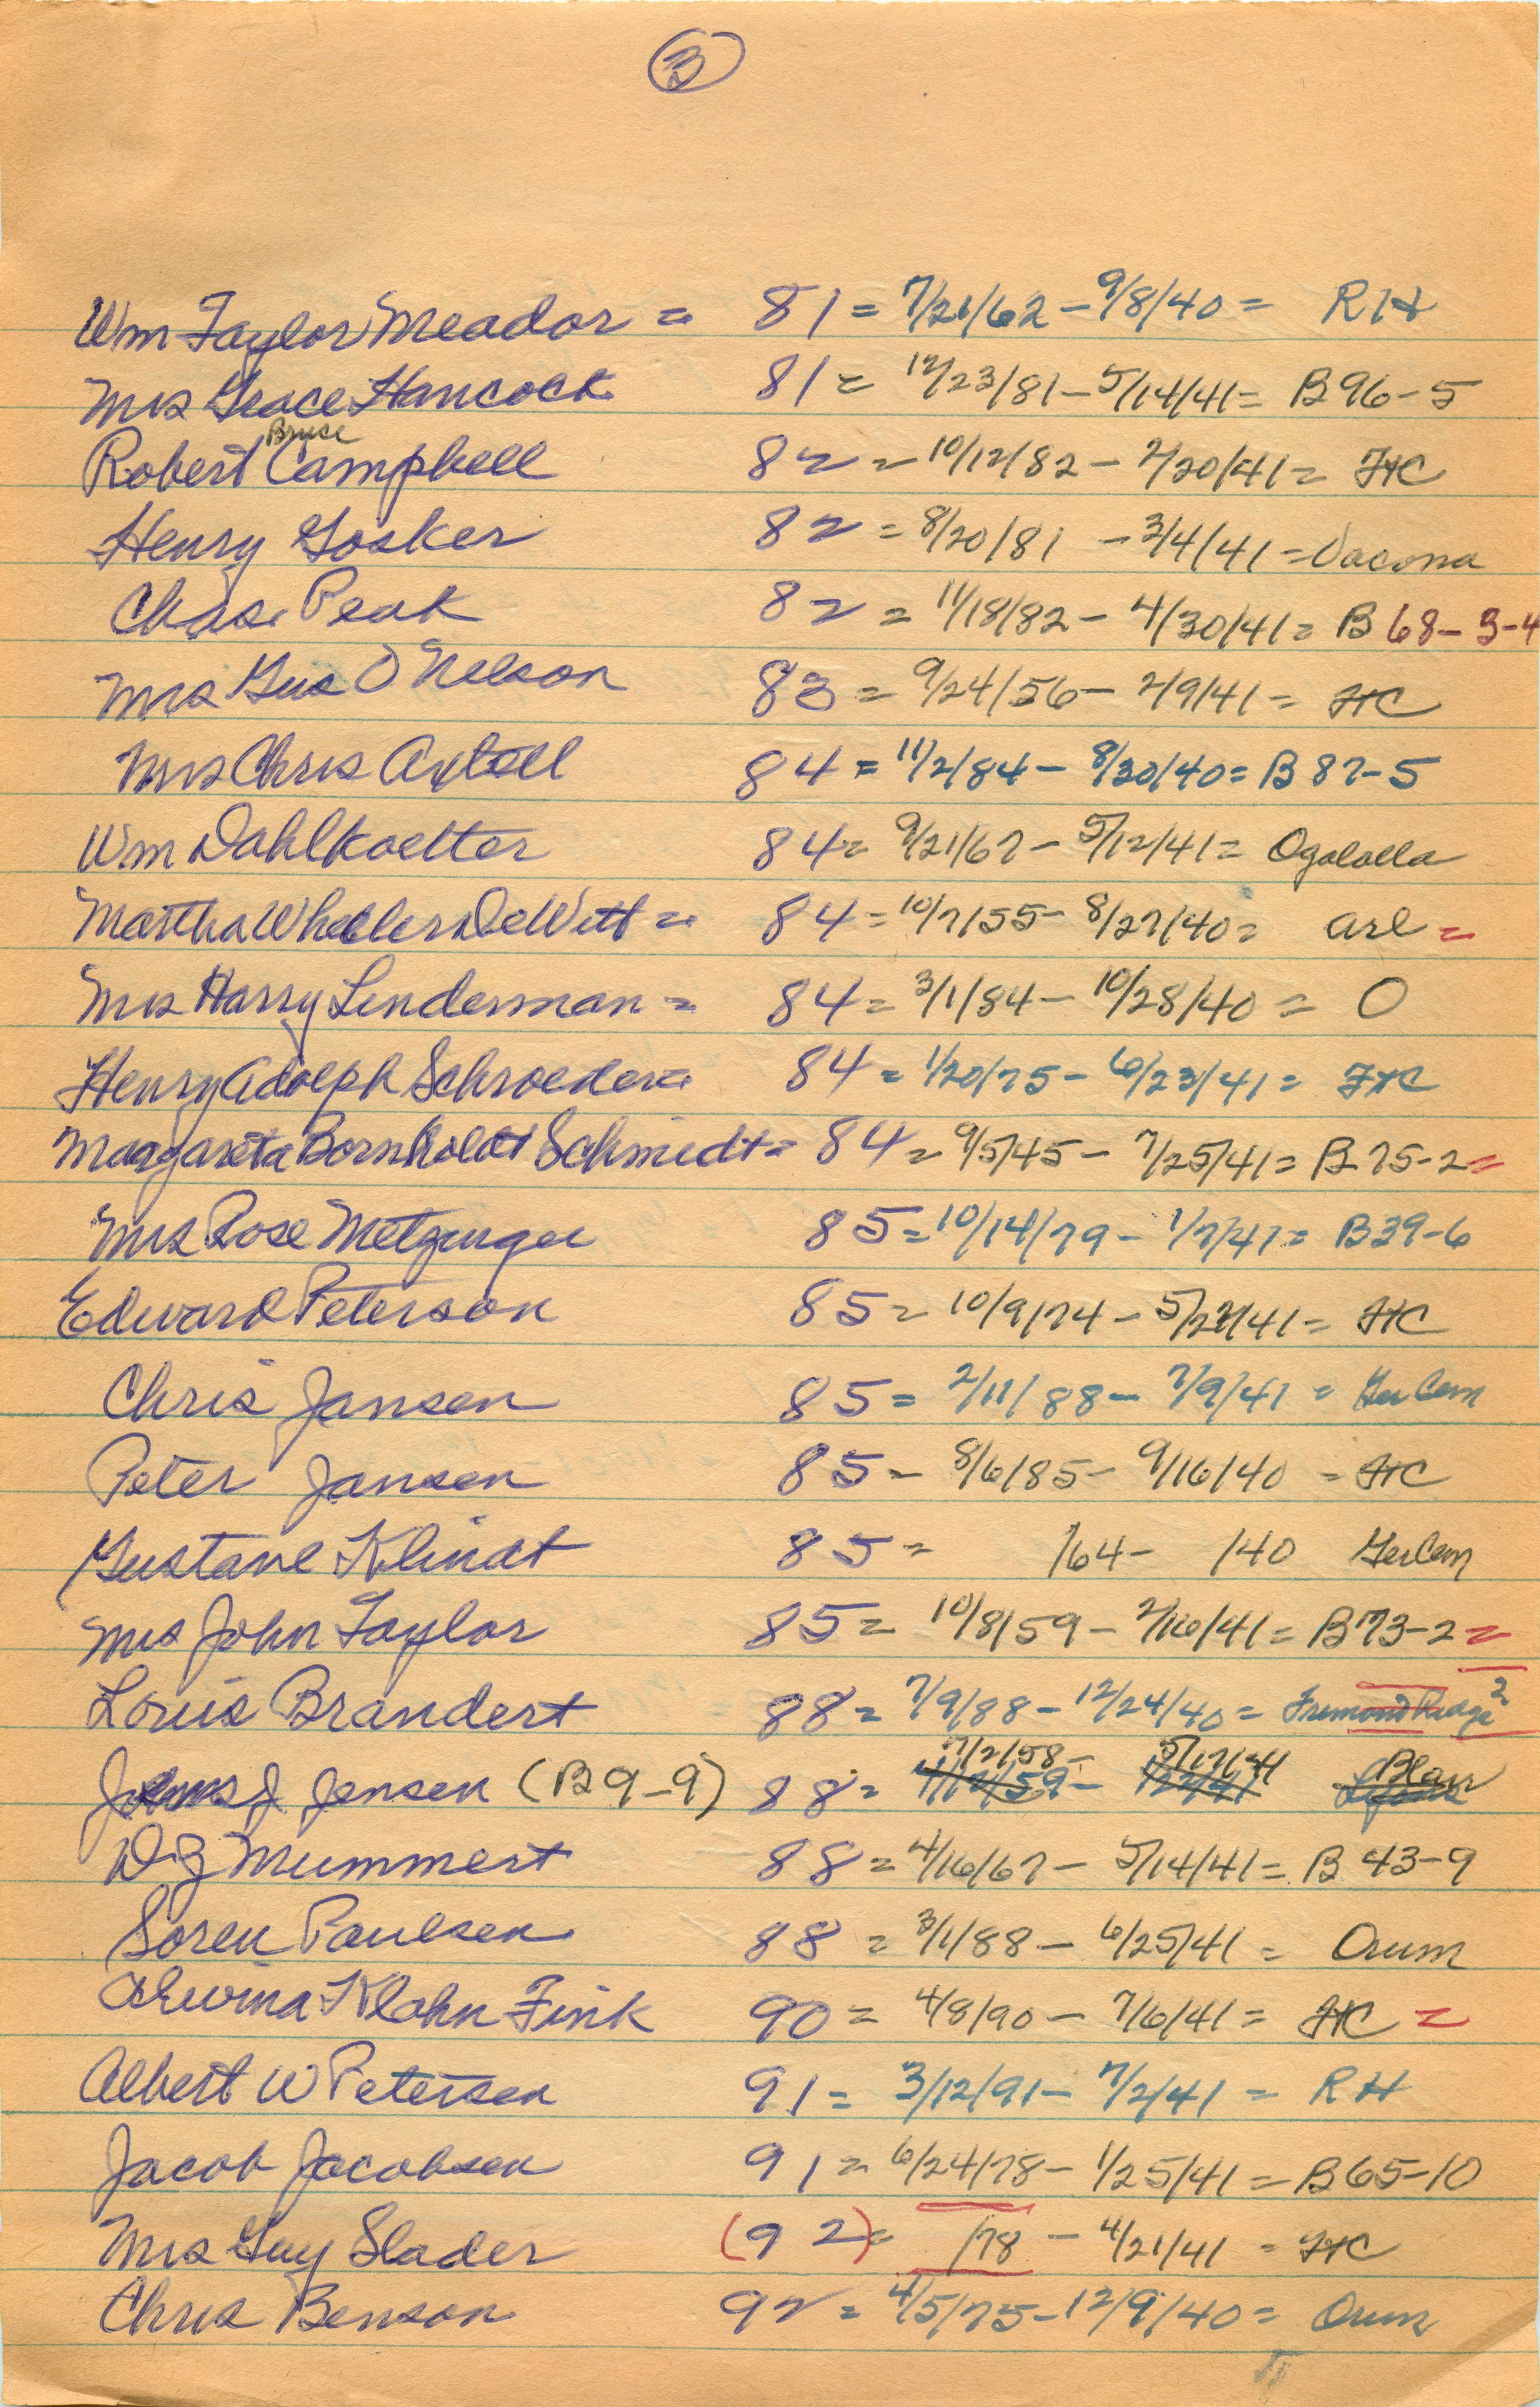 3
Wm Taylor Meador = 81 = 7/21/62 - 9/8/40 = RH
Mrs Grace Hancock 81 = 12/23/81 - 5/14/41 = B 96-5
Robert Bryce Campbell 82 = 10/12/82 - 2/20/41 = FtC
Henry Gosker 82 = 8/20/81 - 3/4/41 = Vacoma
Chas. Peak 82 = 11/18/82 - 4/30/41 = B 68-3-4
Mrs Gus O Nelson 83 = 9/24/56 - 2/9/41 = FtC
Mrs Chris Axtell 84 = 11/2/84 - 8/30/40 = B 87-5
Wm Dahlkoetter 84 = 9/21/67 - 5/12/41 = Ogalalla
Martha Wheeler DeWitt = 84 = 10/7/55 - 8/27/40 = Arl =
Mrs Harry Linderman = 84 = 3/1/84 - 10/28/40 = O
Henry Adolph Schroeder = 84 = 1/20/75 - 6/23/41 = FtC
Margareta Bornholdt Schmidt = 84 = 9/5/45 - 7/25/41 = B 75-2 =
Mrs Rose Metzinger 85 = 10/14/79 - 1/7/41 = B39-6
Edward Peterson 85 = 10/9/74 - 5/27/41 = FtC
Chris Jansen 85 = 2/11/88 - 7/9/41 = Ger Cem
Peter Jansen 85 = 8/6/85 - 9/16/40 = FtC
Gustave Klindt 85 = /64 - /40 Ger Cem
Mrs John Taylor 85 = 10/8/59 - 2/16/41 = B73-2 =
Louis Brandert 88 = 7/9/88 - 12/24/40 = Fremont Ridge 2
7/2/58 - 5/17/41 Blair
J Jensen (B9-9) 88 =
D Z Mummert 88 = 4/16/67 - 5/14/41 = B 43-9
Soren Paulsen 88 = 3/1/88 - 6/25/41 = Orum
Alwina Klahn Fink 90 = 4/8/90 - 7/6/41 = FtC =
Albert W Petersen 91 = 3/12/91 - 7/2/41 = RH
Jacob Jacobsen 91 = 6/24/78 - 1/25/41 = B 65-10
Mrs Guy Slader (92) = /78 - 4/21/41 = FtC
Chris Benson 92 = 4/5/75 - 12/9/40 = Orum